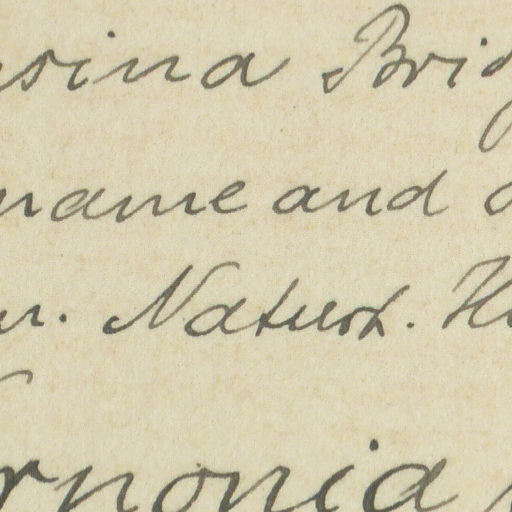 sina Brid
name and d
n. Naturh. H
rnonia